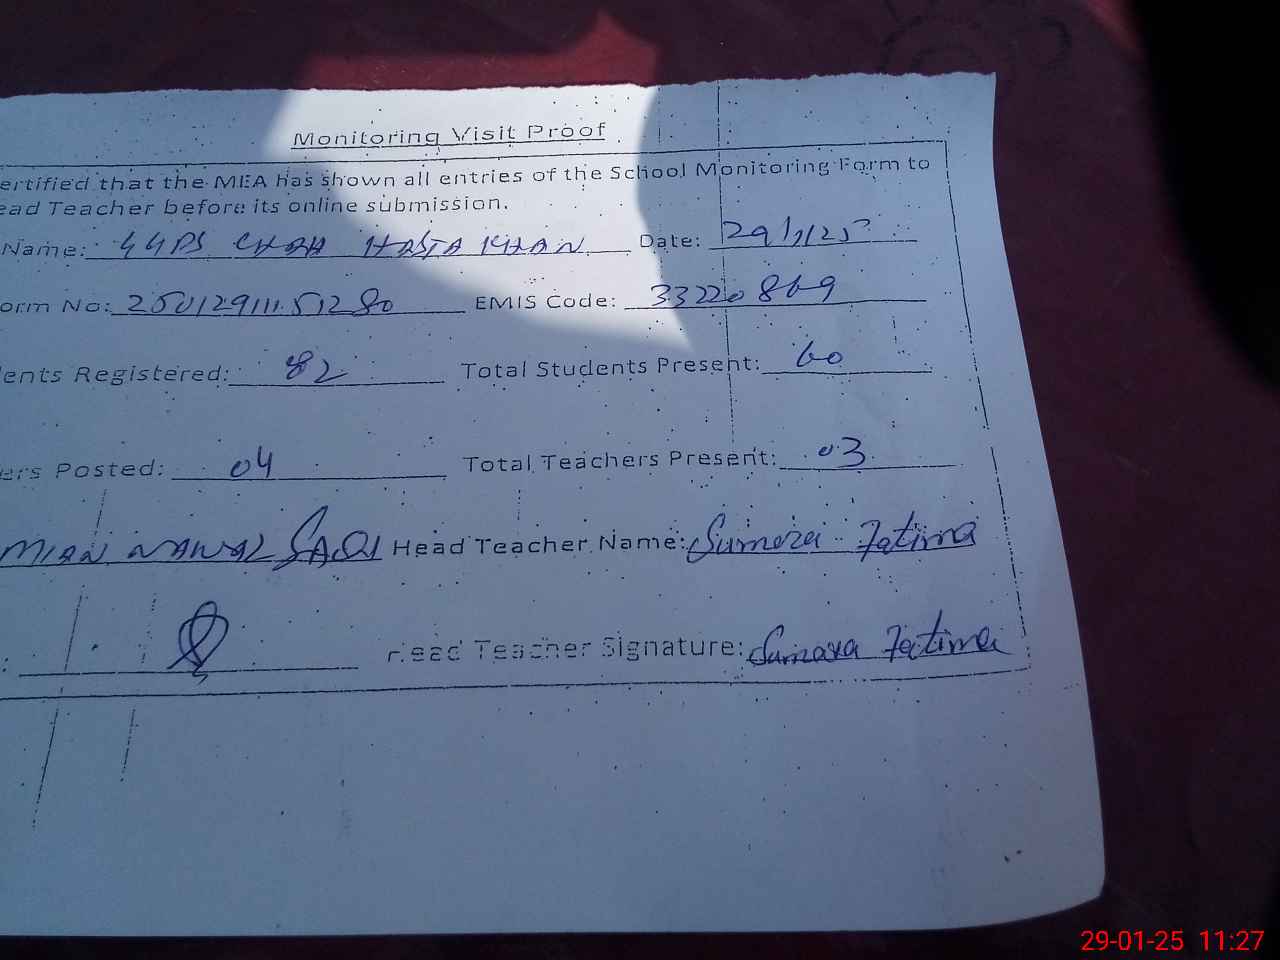 Monitoring Visit Proof
ertified that the MEA has shown all entries of the School Monitoring Form to
ead Teacher before its online submission.
Name: GGPS CHAH HASTA KHAN Date: 29/1/25
orm No: 25012911151280 EMIS Code: 33220869
ents Registered: 82 Total Students Present: 60
ers Posted: 04 Total Teachers Present: 03
MIAN NAWAZ Head Teacher Name: Sumera Fatima
: Head Teacher Signature: Sumaira Fatima
29-01-25 11:27